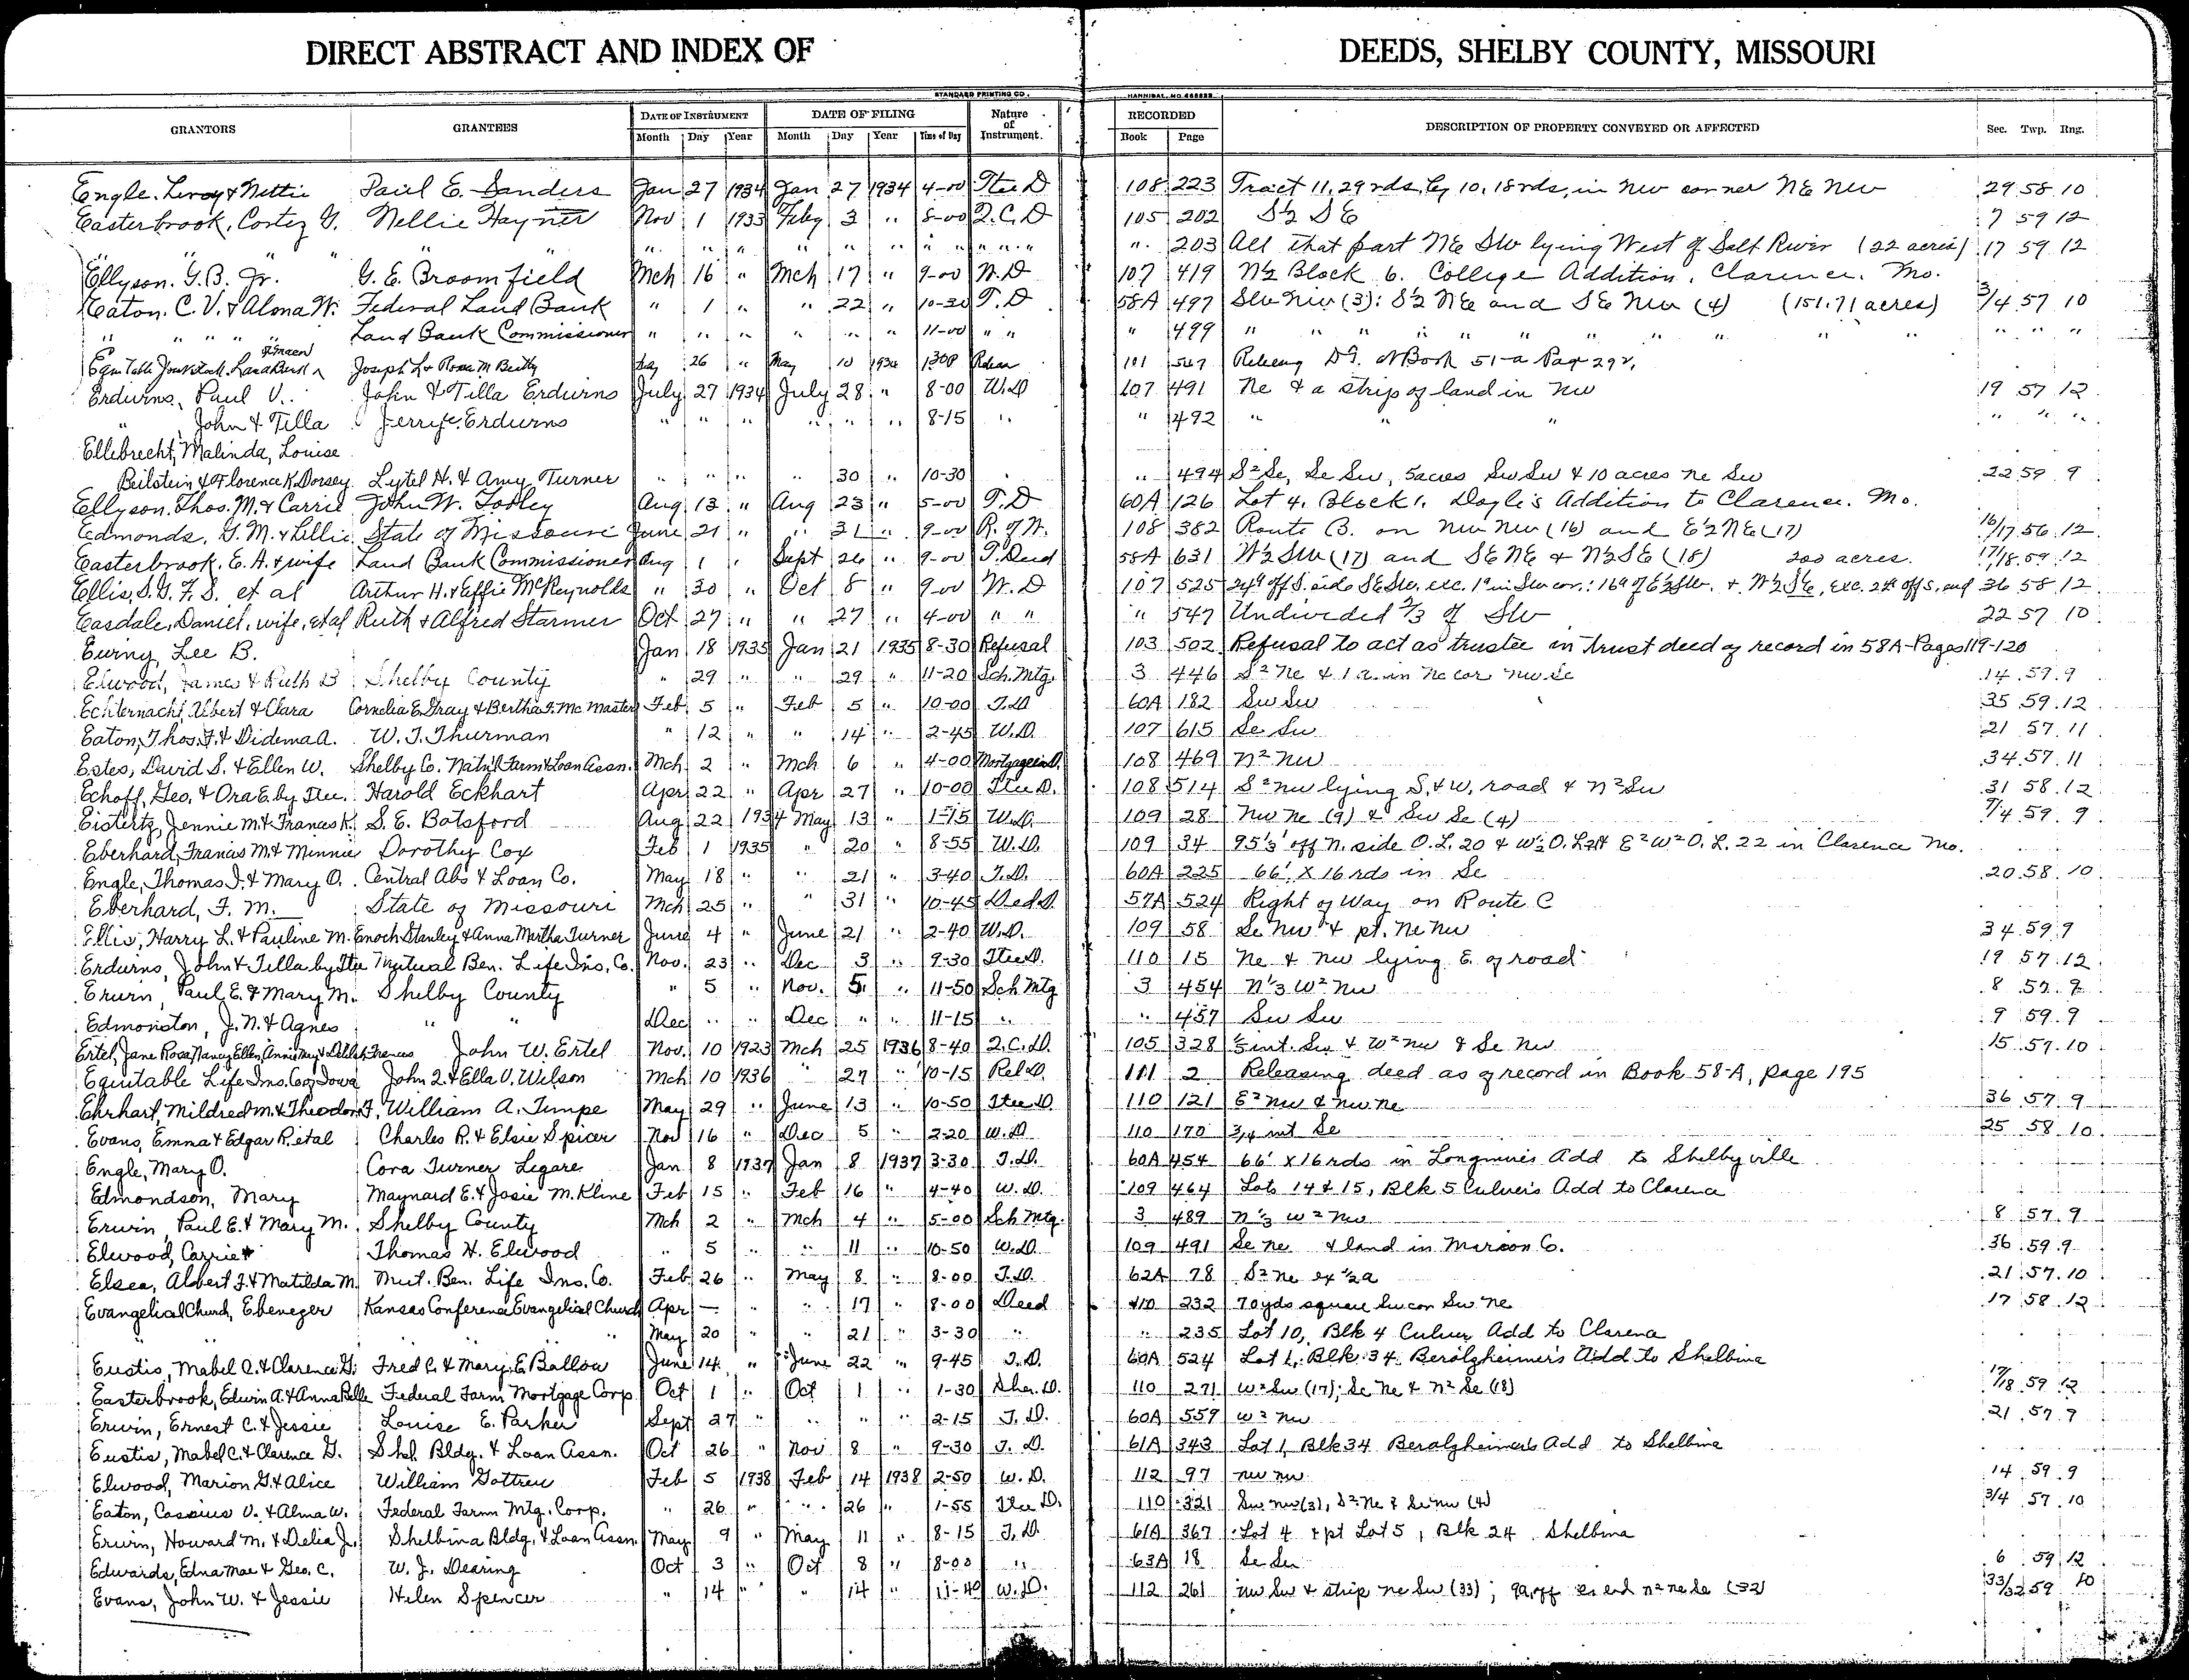 DIRECT ABSTRACT AND INDEX OF DEEDS, SHELBY COUNTY, MISSOURI
STANDARD PRINTING CO. HANNIBAL, MO.
GRANTORS GRANTEES DATE OF INSTRUMENT DATE OF FILING Nature of Instrument. RECORDED DESCRIPTION OF PROPERTY CONVEYED OR AFFECTED Sec. Twp. Rng.
Month Day Year Month Day Year Time of Day Book Page
Engle, Leroy & Nettie Paul E. Sanders Jan 27 1934 Jan 27 1934 4-00 Tree D 108 223 Tract 11.29 rds. by 10.18 rds. in NW corner NE NW 29 58 10
Easterbrook, Cortez G. Nellie Hayner Nov 1 1933 Feby 3 " 8-00 Q.C.D 105 202 S½ SE 7 59 12
" " " " " " " " " " " " " 203 All that part NE SW lying West of Salt River (22 acres) 17 59 12
Ellyson. G.B. Jr. G. E. Broomfield Mch 16 " Mch 17 " 9-00 W.D 107 419 N½ Block 6. College Addition, Clarence. Mo.
Eaton. C. V. & Alona W. Federal Land Bank " 1 " " 22 " 10-30 T.D 58A 497 SW NW (3): S½ NE and SE NW (4) (151.71 acres) 3/4 57 10
" " " " Land Bank Commissioner " " " " " " 11-00 " " " 499 " " " " " " " " " " "
Equitable Joint Stock Land Bank Joseph L & Rosa M 26 " May 10 1934 101 567 Releasing D.T. Book 51-a Page 292.
Erdwins, Paul V. John & Tilla Erdwins July 27 1934 July 28 " 8-00 W.D 107 491 Ne & a strip of land in NW 19 57 12
" John & Tilla Jerry Erdwins " " " " " " 8-15 " " 492 " " " " " "
Ellebrecht, Malinda, Louise
Beilstein & Florence K. Dorsey Lytel H. & Amy Turner " " " " 30 " 10-30 " " 494 S² Se, Se Sw, 5 acres Sw Sw & 10 acres Ne Sw 22 59 9
Ellyson. Thos. M. & Carrie John W. Tooley Aug 13 " Aug 23 " 5-00 T.D 60A 126 Lot 4. Block 1. Doyle's Addition to Clarence. Mo.
Edmonds, G. M. & Lillie State of Missouri June 21 " " 31 " 9-00 R. of W. 108 382 Route B. on NW NW (16) and E½ NE (17) 16/17 56 12
Easterbrook. E. A. & wife Land Bank Commissioner Aug 1 " Sept 26 " 9-00 T. Deed 58A 631 W½ SW (17) and SE NE & N½ SE (18) 200 acres. 17/18 59 12
Ellis, S.G. F. S. et al Arthur H. & Effie McReynolds " 30 " Oct 8 " 9-00 W.D 107 525 24ᵃ off S. side SE SW. exc. 1ᵃ in SW cor.: 16ᵃ of E½ SW. & W½ SE, exc. 24 off S. end 36 58 12
Easdale, Daniel, wife, et al Ruth & Alfred Starmer Oct 27 " " 27 " 4-00 " " " 547 Undivided 2/3 of SW 22 57 10
Ewing, Lee B. Jan 18 1935 Jan 21 1935 8-30 Refusal 103 502 Refusal to act as trustee in trust deed of record in 58A-Pages 119-120
Elwood, James & Ruth B Shelby County " 29 " " 29 " 11-20 Sch. Mtg. 3 446 S² Ne & 1 a. in Ne cor NW Se 14 59 9
Echternacht, Albert & Clara Cornelia E. Gray & Bertha F. McMaster Feb 5 " Feb 5 " 10-00 T.D 60A 182 Sw Sw 35 59 12
Eaton, Thos. F. & Didema A. W. T. Thurman " 12 " " 14 " 2-45 W.D. 107 615 Se Sw 21 57 11
Estes, David S. & Ellen W. Shelby Co. Nat'l Farm & Loan Assn. Mch 2 " Mch 6 " 4-00 108 469 N² NW 34 57 11
Echoff, Geo. & Ora E. by Tree. Harold Eckhart Apr 22 " Apr 27 " 10-00 Tree D. 108 514 S² NW lying S. & W. road & N² Sw 31 58 12
Eistertz, Jennie M. & Frances K. S. E. Batsford Aug 22 1934 May 13 " 1-15 W.D. 109 28 NW Ne (9) & Sw Se (4) 9/4 59 9
Eberhard, Francis M. & Minnie Dorothy Cox Feb 1 1935 " 20 " 8-55 W.D. 109 34 95⅓' off N. side O.L. 20 & W½ O.L. 21 & E² W² O.L. 22 in Clarence Mo.
Engle, Thomas J. & Mary O. Central Abs & Loan Co. May 18 " " 21 " 3-40 T.D. 60A 225 66' x 16 rds in Se 20 58 10
Eberhard, F. M. State of Missouri Mch 25 " " 31 " 10-45 Ded D. 57A 524 Right of Way on Route C
Ellis, Harry L. & Pauline M. Enoch Stanley & Anna Martha Turner June 4 " June 21 " 2-40 W.D. 109 58 Se NW & pt. Ne NW 34 59 9
Erdwins, John & Tilla by Tree Mutual Ben. Life Ins. Co. Nov. 23 " Dec 3 " 9-30 Tree D. 110 15 Ne & NW lying E. of road 19 57 12
Erwin, Paul E. & Mary M. Shelby County " 5 " Nov. 5 " 11-50 Sch Mtg 3 454 N⅓ W² NW 8 57 9
Edmonston, J. N. & Agnes " " Dec " " Dec " " 11-15 " " 457 Sw Sw 9 59 9
Ertel, Jane Rosa, Nancy Ellen, Annie May & Delilah Frances John W. Ertel Nov. 10 1923 Mch 25 1936 8-40 Q.C.D. 105 328 ⅕ int. Sw & W² NW & Se NW 15 57 10
Equitable Life Ins. Co. of Iowa John Q. & Ella V. Wilson Mch 10 1936 " 27 " 10-15 Rel D. 111 2 Releasing deed as of record in Book 58-A, page 195
Ehrhart, Mildred M. & Theodore F. William A. Timpe May 29 " June 13 " 10-50 Tree D. 110 121 E² NW & NW Ne 36 57 9
Evans, Emma & Edgar R. et al Charles R. & Elsie Spicer Nov 16 " Dec 5 " 2-20 W.D 110 170 3/4 int Se 25 58 10
Engle, Mary O. Cora Turner Legare Jan 8 1937 Jan 8 1937 3-30 T.D. 60A 454 66' x 16 rds in Longmires Add to Shelbyville
Edmondson, Mary Maynard E. & Josie M. Kline Feb 15 " Feb 16 " 4-40 W.D. 109 464 Lots 14 & 15, Blk 5 Culvers Add to Clarence
Erwin, Paul E. & Mary M. Shelby County Mch 2 " Mch 4 " 5-00 Sch Mtg. 3 489 N⅓ W² NW 8 57 9
Elwood, Carrie Thomas H. Elwood " 5 " " 11 " 10-50 W.D. 109 491 Se Ne & land in Marion Co. 36 59 9
Elsea, Albert F. & Matilda M. Mut. Ben. Life Ins. Co. Feb 26 " May 8 " 8-00 T.D. 62A 78 S² Ne ex ½ a 21 57 10
Evangelical Church, Ebenezer Kansas Conference Evangelical Church Apr — " " 17 " 8-00 Deed 110 232 70 yds square Sw cor Sw Ne 17 58 12
" " " May 20 " " 21 " 3-30 " " 235 Lot 10, Blk 4 Culver Add to Clarence
Eustis, Mabel C. & Clarence G. Fred C. & Mary E. Ballow June 14 " June 22 " 9-45 T.D. 60A 524 Lot 1, Blk. 34 Beralzheimer's Add to Shelbina
Easterbrook, Edwin A. & Anna Belle Federal Farm Mortgage Corp Oct 1 " Oct 1 " 1-30 Sher. D. 110 271 W² Sw (17); Se Ne & N² Se (18) 17/18 59 12
Erwin, Ernest C. & Jessie Louise E. Parker Sept 27 " " " " 2-15 T.D. 60A 559 W² NW 21 57 9
Eustis, Mabel C. & Clarence G. Shel. Bldg. & Loan Assn. Oct 26 " Nov 8 " 9-30 T.D. 61A 343 Lot 1, Blk 34 Beralzheimer's Add to Shelbina
Elwood, Marion G. & Alice William Gottreu Feb 5 1938 Feb 14 1938 2-50 W.D. 112 97 NW NW 14 59 9
Eaton, Cassius V. & Alma W. Federal Farm Mtg. Corp. " 26 " " 26 " 1-55 Tree D. 110 321 Sw NW (3), S² Ne & Se NW (4) 3/4 57 10
Erwin, Howard M. & Delia J. Shelbina Bldg. & Loan Assn. May 9 " May 11 " 8-15 T.D. 61A 367 Lot 4 & pt Lot 5, Blk 24 Shelbina
Edwards, Edna Mae & Geo. C. W. J. Dearing Oct 3 " Oct 8 " 8-00 " 63A 18 Se Se 6 59 12
Evans, John W. & Jessie Helen Spencer " 14 " " 14 " 11-40 W.D. 112 261 NW Sw & strip Ne Sw (33); 9a. off end N² Ne Se (32) 33/32 59 10